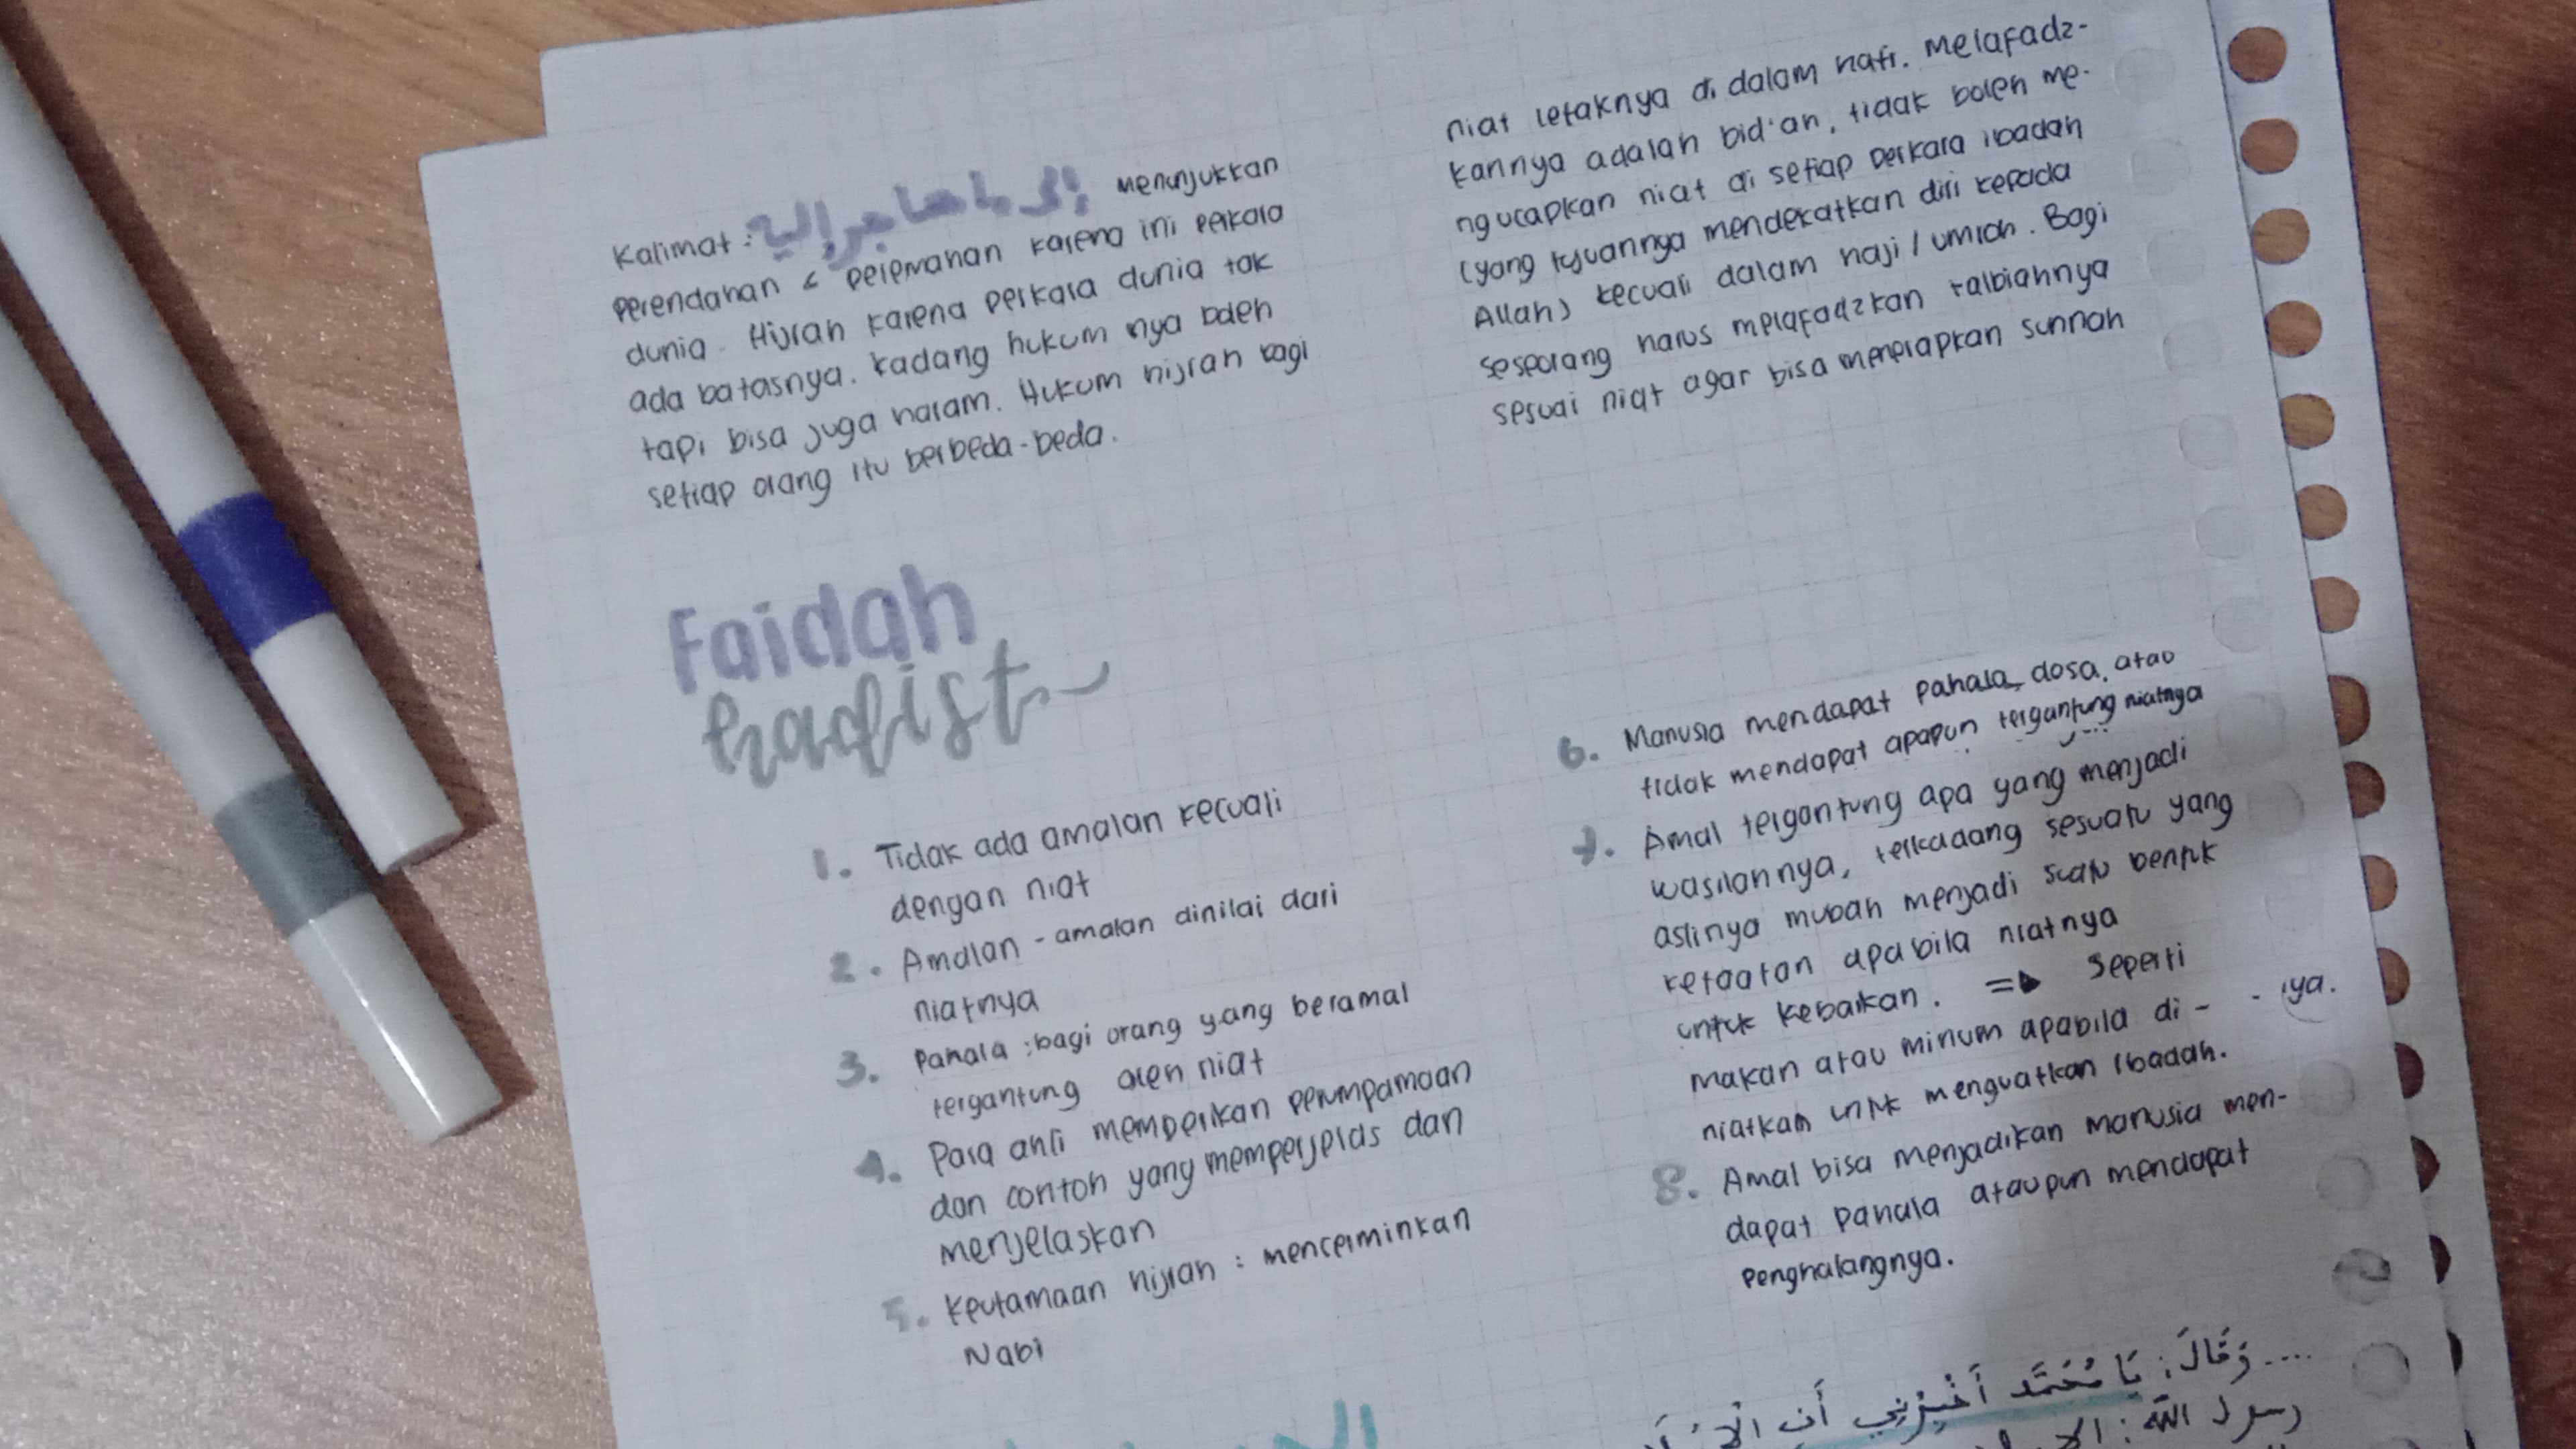 Kalimat : إلى ما هاجر إليه menunjukkan
perendahan & peremahan karena ini perkara
dunia. Hijrah karena perkara dunia tak
ada batasnya. Kadang hukum nya boleh
tapi bisa juga haram. Hukum hijrah bagi
setiap orang itu berbeda-beda.
niat letaknya di dalam hati. Melafadz-
kannya adalah bid'ah, tidak boleh me-
ngucapkan niat di setiap perkara ibadah
(yang tujuannya mendekatkan diri kepada
Allah) kecuali dalam haji / umroh. Bagi
seseorang harus melafadzkan talbiahnya
sesuai niat agar bisa menerapkan sunnah
Faidah
hadist
1. Tidak ada amalan kecuali
dengan niat
2. Amalan - amalan dinilai dari
niatnya
3. Pahala : bagi orang yang beramal
tergantung oleh niat
4. Para ahli memberikan perumpamaan
dan contoh yang memperjelas dan
menjelaskan
5. Keutamaan hijrah : mencerminkan
Nabi
6. Manusia mendapat pahala, dosa, atau
tidak mendapat apapun tergantung niatnya
7. Amal tergantung apa yang menjadi
wasilahnya, terkadang sesuatu yang
aslinya mubah menjadi suatu bentuk
ketaatan apabila niatnya
untuk kebaikan. => Seperti
makan atau minum apabila di -
niatkan untk menguatkan ibadah.
- iya.
8. Amal bisa menjadikan manusia men-
dapat pahala ataupun mendapat
penghalangnya.
.... وَقَالَ : يَا مُحَمَّد أَخْبِرْنِي
رسول الله :